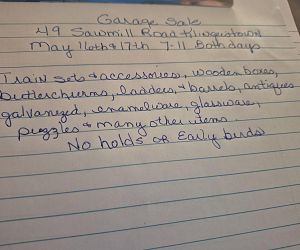 Garage Sale
49 Sawmill Road Klingerstown
May 16th & 17th 7-11 Both days
Train sets & accessories, wooden boxes,
butterchurns, ladders & barrels, antiques
galvanized, enamelware, glassware,
puzzles & many other items.
No holds or Early birds